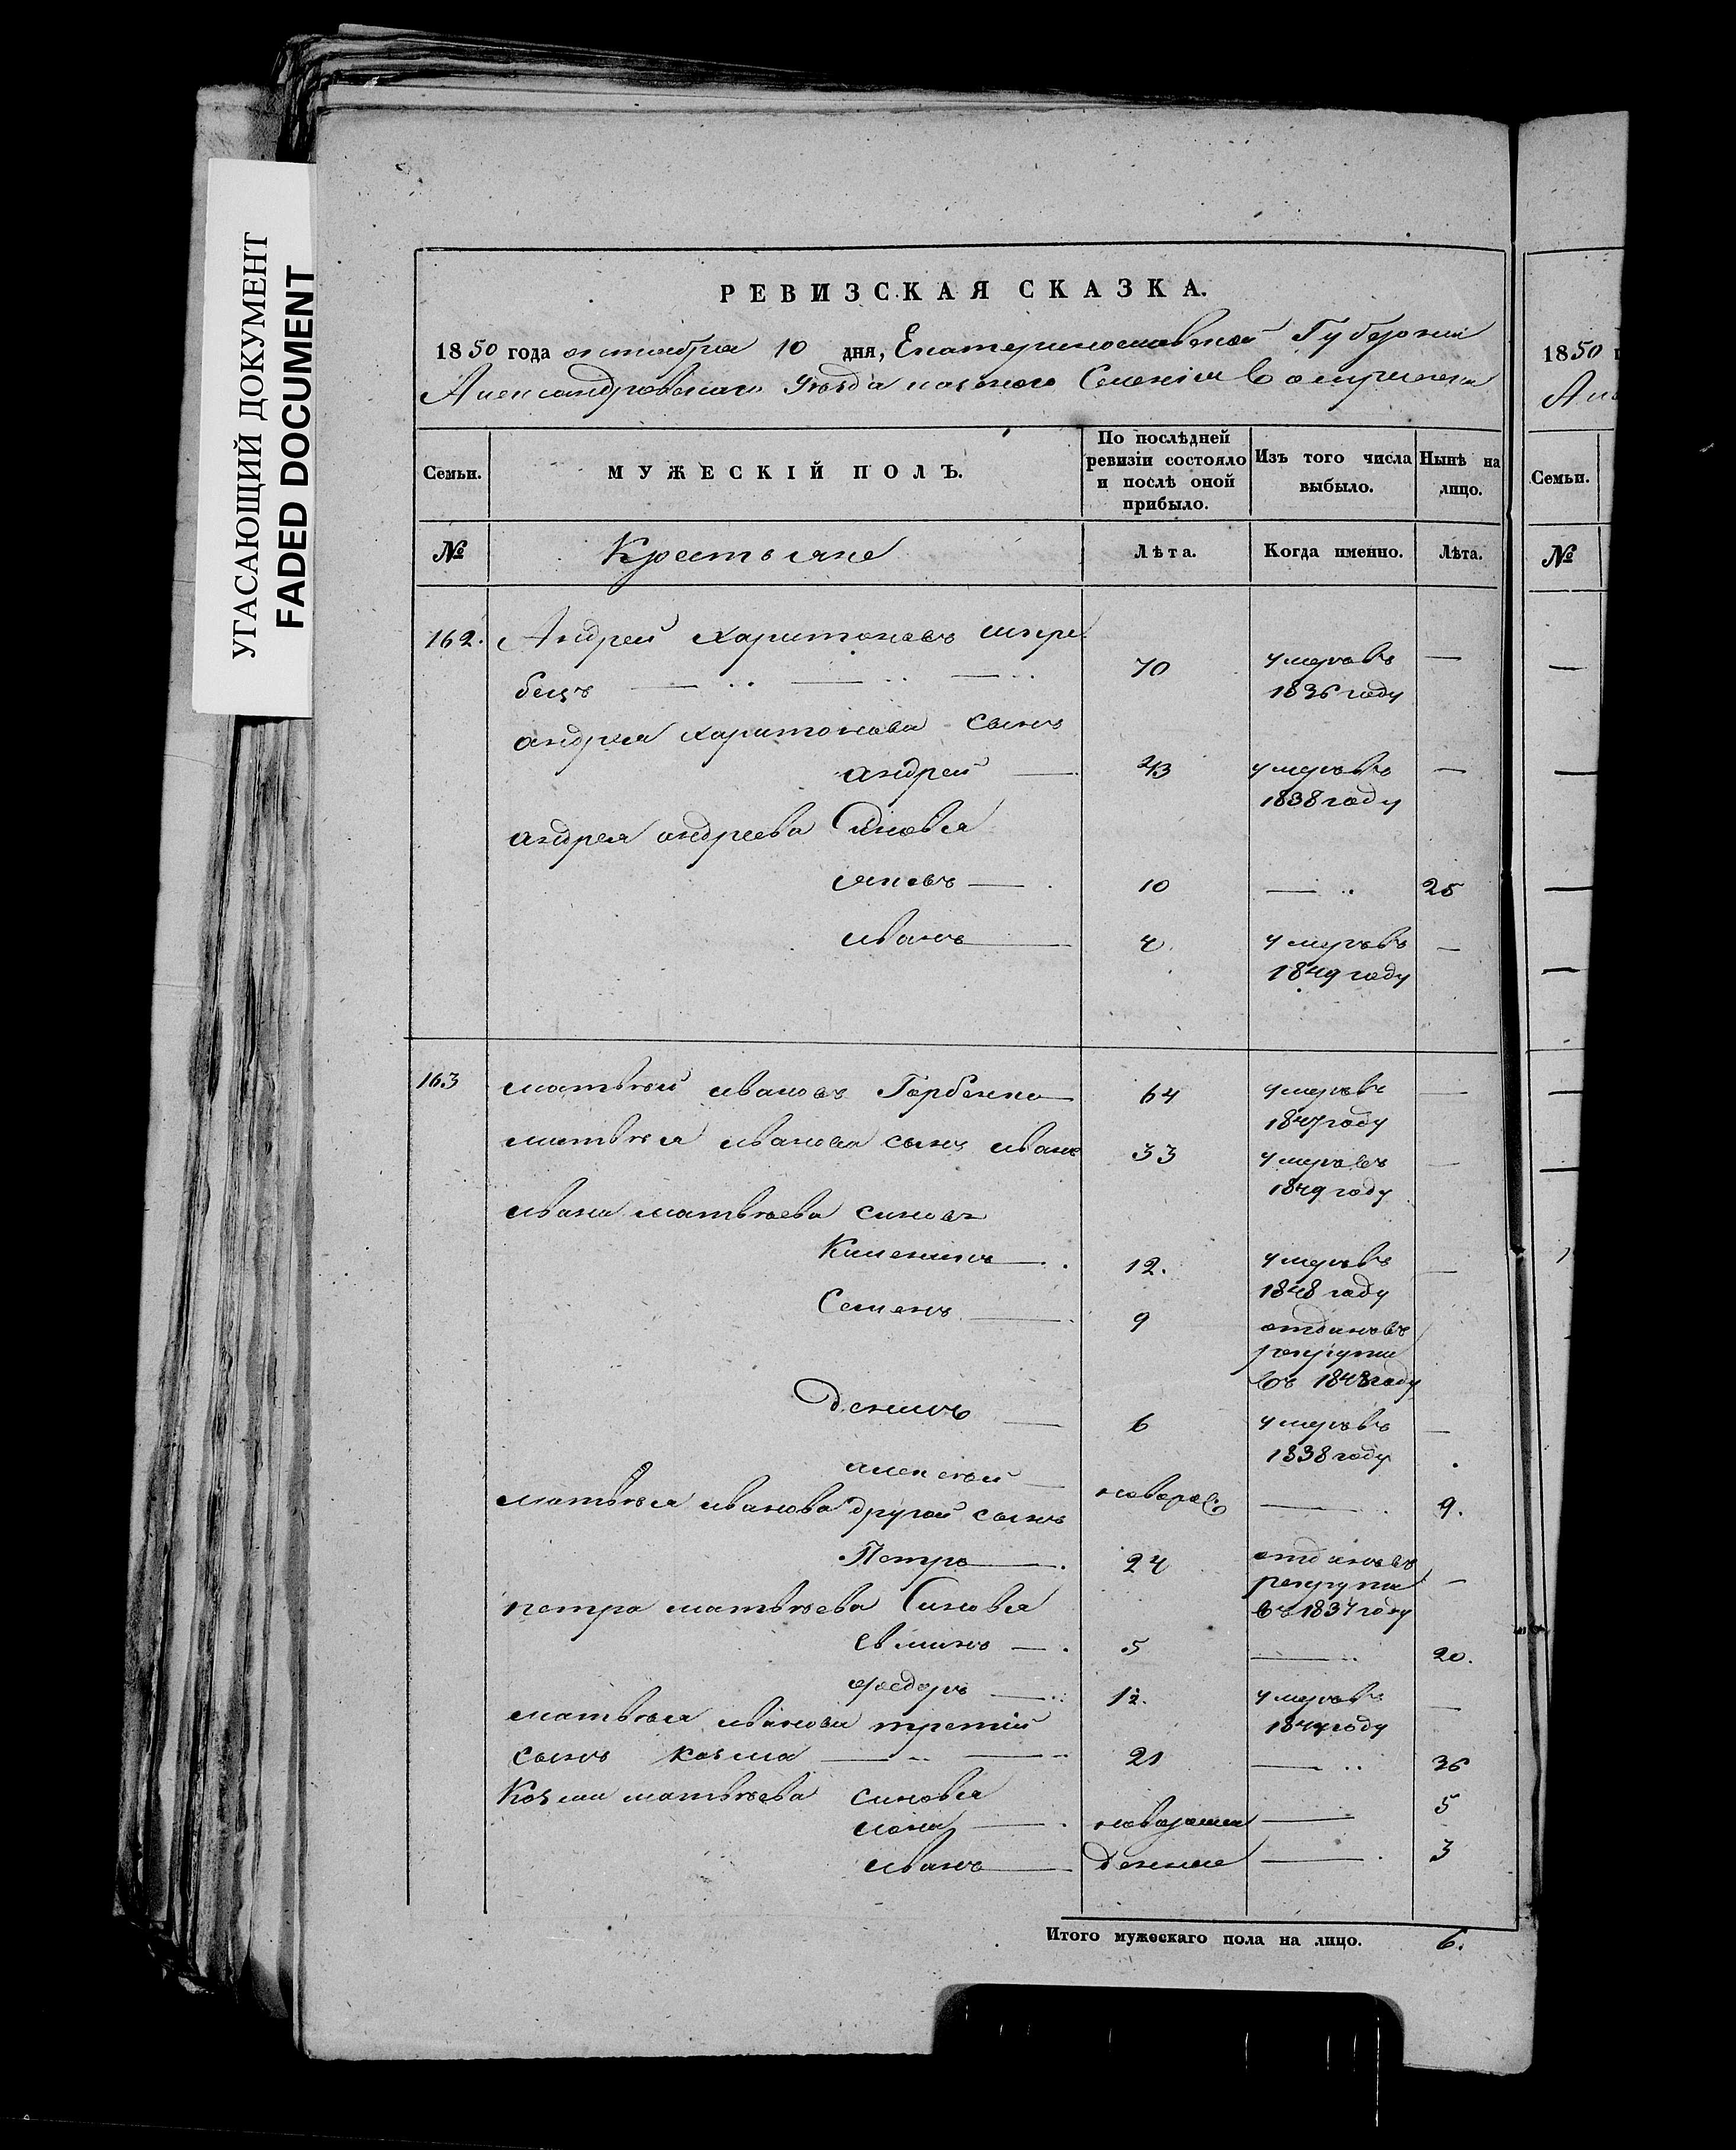 УГАСАЮЩИЙ ДОКУМЕНТ
FADED DOCUMENT
РЕВИЗСКАЯ СКАЗКА.
1850 года октября 10 дня, Екатеринославской Губернии
Александровскаго Уезда казеного Селенія
Семьи.
МУЖЕСКІЙ ПОЛЪ.
По послѣдней ревизіи состояло и послѣ оной прибыло.
Изъ того числа выбыло.
Нынѣ на лицо.
№ Крестьяне Лѣта. Когда именно. Лѣта.
162. Андрей харитоновъ шкре
бецъ 70 умеръ въ 1836 году —
андрея харитонова сынъ
андрей — 43 умеръ въ 1838 году —
андрея андреева Синовья
яковъ — 10 — 25
иванъ — 4 умеръ въ 1849 году —
163 матвѣй ивановъ Горбенко 64 умеръ въ 1847 году —
матвѣя иванова сынъ иванъ 33 умеръ въ 1849 году —
ивана матвѣева синовья
12. умеръ въ 1848 году —
Семенъ — 9 отданъ въ рекруты въ 1848 году
Денисъ — 6 умеръ въ 1838 году —
алексѣй — новорож — 9.
матвѣя иванова другой сынъ
Петръ — 24 отданъ въ рекруты въ 1834 году —
петра матвѣева Синовья
5 — 20.
федоръ — 12. умеръ въ 1844 году —
матвѣя иванова третій
сынъ козма — 21 — 36
Козми матвѣева синовья
иона — новорож — 5
иванъ — денные — 3
Итого мужескаго пола на лицо. 6.
1850
Але
Семьи.
№